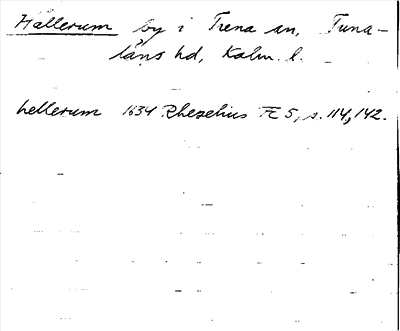 Hallerum by i Trena sn, Tuna-
läns hd, Kalm. l.
hellerum 1634 Rhezelius Fc 5, s. 114, 142.